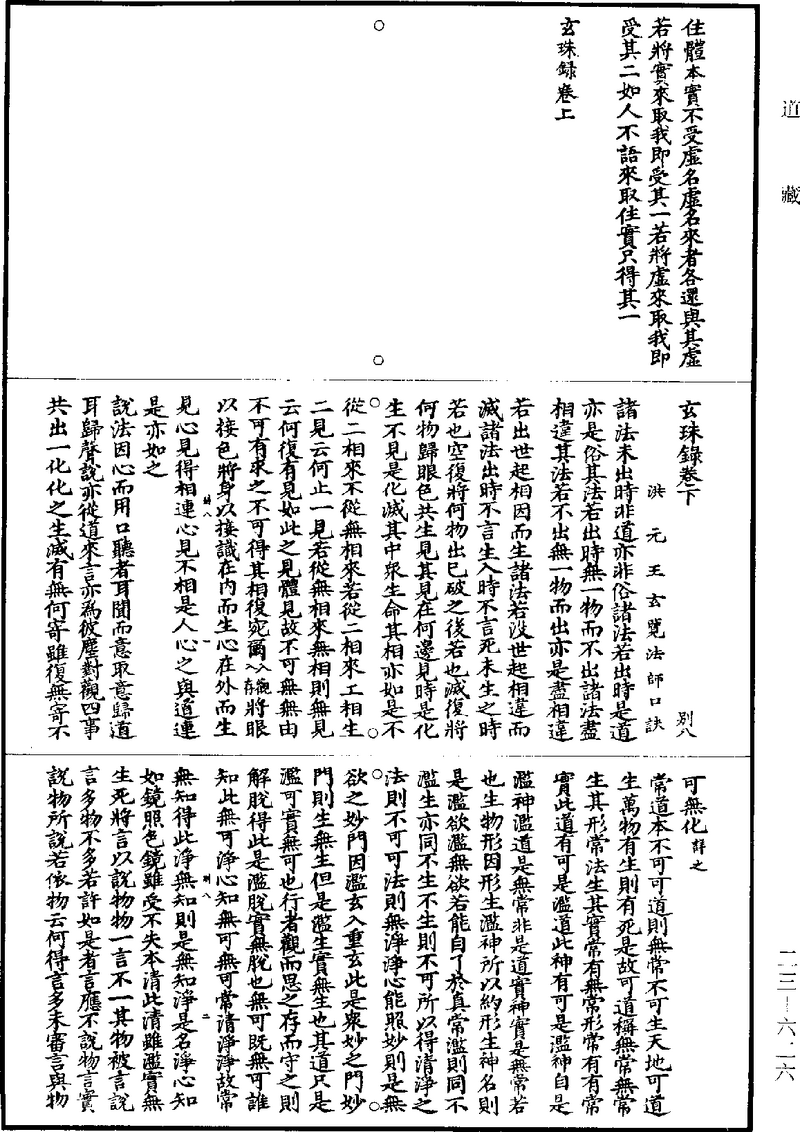 道藏
住體本實不受虛名虛名來者各還與其虛
若將實來取我即受其一若將虛來取我即
受其二如人不語來取住實只得其一
玄珠錄卷上
玄珠錄卷下
別八
洪元王玄覽法師口訣
諸法未出時非道亦非俗諸法若出時是道
亦是俗其法若出時無一物而不出諸法盡
相違其法若不出無一物而出亦是盡相違
若出世起相因而生諸法若沒世起相違而
滅諸法出時不言生入時不言死未生之時
若也空復將何物出已破之後若也滅復將
何物歸眼色共生見其見在何邊見時是化
生不見是化滅其中眾生命其相亦如是不
從二相來不從無相來若從二相來工相生
二見云何止一見若從無相來無相則無見
云何復有見如此之見體見故不可無無由
不可有來之不可得其相復宛爾入觀存入將眼
以接色將身以接識在內而生心在外而生
見心見得相連心見不相是人心之與道連
是亦如之
說法因心而用口聽者耳聞而意取意歸道
耳歸聲說亦從道來言亦為彼塵對觀四事
共出一化化之生滅有無何寄雖復無寄不
可無化詳之
常道本不可可道則無常不可生天地可道
生萬物有生則有死是故可道稱無常無常
生其形常法生其實常有無常形常有有常
實此道有可是濫道此神有可是濫神自是
濫神濫道是無常非是道實神實是無常若
也生物形因形生濫神所以約形生神名則
是濫欲濫無欲若能自了於真常濫則同不
濫生亦同不生不生則不可所以得清淨之
法則不可可法則無淨淨心能照妙則是無
欲之妙門因濫玄入重玄此是眾妙之門妙
門則生無生但是濫生實無生也其道只是
濫可實無可也行者觀而思之存而守之則
解脫得此是濫脫實無脫也無可既無可誰
知此無可淨心知無可無可常清淨淨故常
無知得此淨無知則是無知淨是名淨心知
如鏡照色鏡雖受不失本清此清雖濫實無
生死將言以說物物一言不一其物被言說
言多物不多若許如是者言應不說物言實
說物所說若依物云何得言多未審言與物
二三—六二六